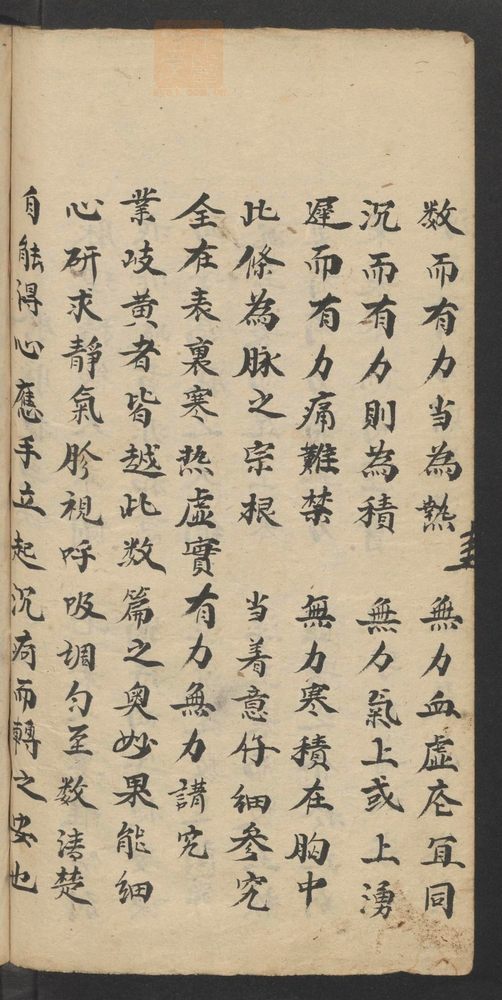 数而有力当為熱 無力血虛宜同
沉而有力則為積 無力氣上或上湧
遲而有力痛難禁 無力寒積在胸中
此條為脉之宗根 当着意仔細參究
全在表裏寒熱虛實有力無力講究
業岐黄者皆越此数篇之奥妙果能細
心研求靜氣胗視呼吸調匀至数清楚
自能得心應手立起沉疴而轉之安也